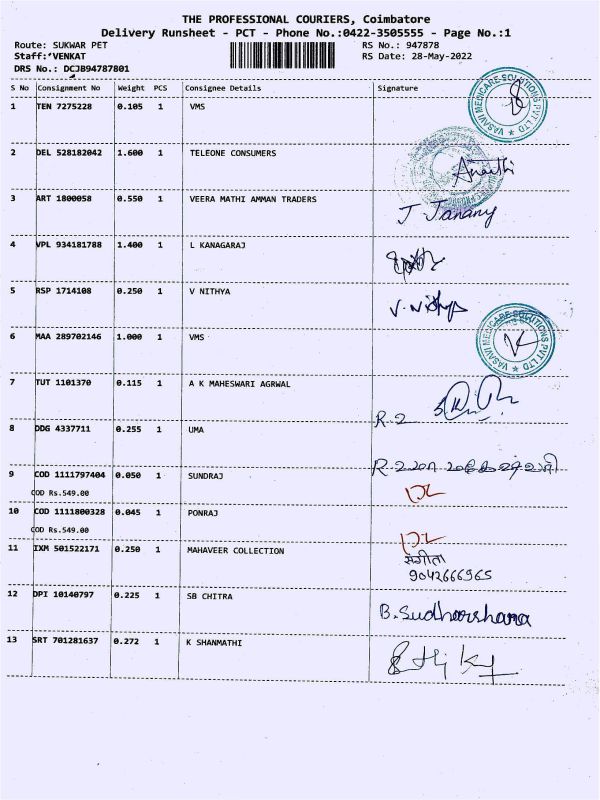 THE PROFESSIONAL COURIERS, Coimbatore
Delivery Runsheet - PCT - Phone No.:0422-3505555 - Page No.:1
Route: SUKWAR PET RS No.: 947878
Staff:*VENKAT RS Date: 28-May-2022
DRS No.: DCJB94787801
S No Consignment No Weight PCS Consignee Details Signature
1 TEN 7275228 0.105 1 VMS
VASAVI MEDICARE SOLUTIONS PVT LTD
2 DEL 528182042 1.600 1 TELEONE CONSUMERS
3 ART 1800058 0.550 1 VEERA MATHI AMMAN TRADERS J Janany
4 VPL 934181788 1.400 1 L KANAGARAJ
5 RSP 1714108 0.250 1 V NITHYA V. Nithya
6 MAA 289702146 1.000 1 VMS
VASAVI MEDICARE SOLUTIONS PVT LTD
7 TUT 1101370 0.115 1 A K MAHESWARI AGRWAL
R-2
8 DDG 4337711 0.255 1 UMA
9 COD 1111797404 0.050 1 SUNDRAJ
COD Rs.549.00
10 COD 1111800328 0.045 1 PONRAJ
COD Rs.549.00
11 IXM 501522171 0.250 1 MAHAVEER COLLECTION संगीता
9042666965
12 DPI 10140797 0.225 1 SB CHITRA B.Sudharshana
13 SRT 701281637 0.272 1 K SHANMATHI